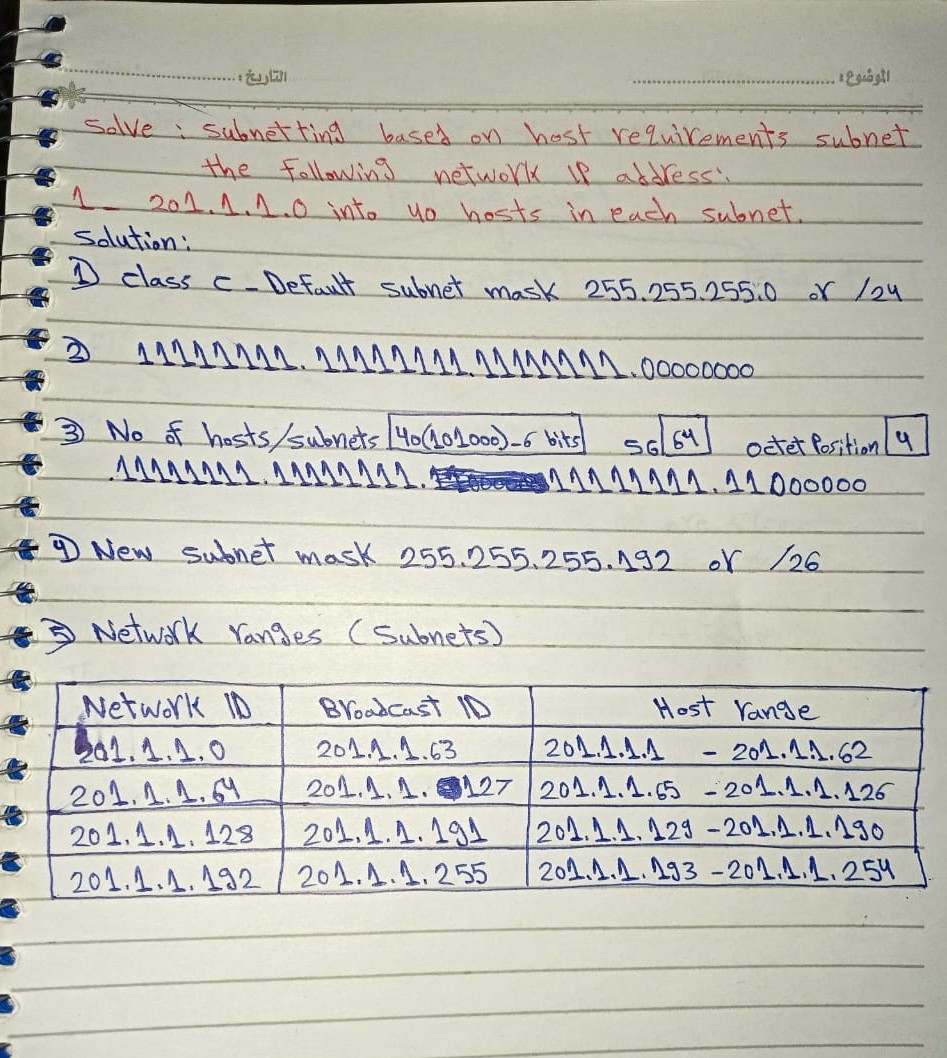 الموضوع: التاريخ:
Solve: subnetting based on host requirements subnet
the following network IP address:.
1_ 201.1.1.0 into 40 hosts in each subnet.
Solution:
1) class c - Default subnet mask 255.255.255.0 or /24
2) 11111111.11111111.11111111.00000000
3) No of hosts/subnets 40(101000)-6 bits SG 64 octet Position 4
11111111.11111111.11111111.11000000
4) New subnet mask 255.255.255.192 or /26
5) Network ranges (Subnets)
Network ID Broadcast ID Host range
201.1.1.0 201.1.1.63 201.1.1.1 - 201.1.1.62
201.1.1.64 201.1.1.127 201.1.1.65 - 201.1.1.126
201.1.1.128 201.1.1.191 201.1.1.129 - 201.1.1.190
201.1.1.192 201.1.1.255 201.1.1.193 - 201.1.1.254